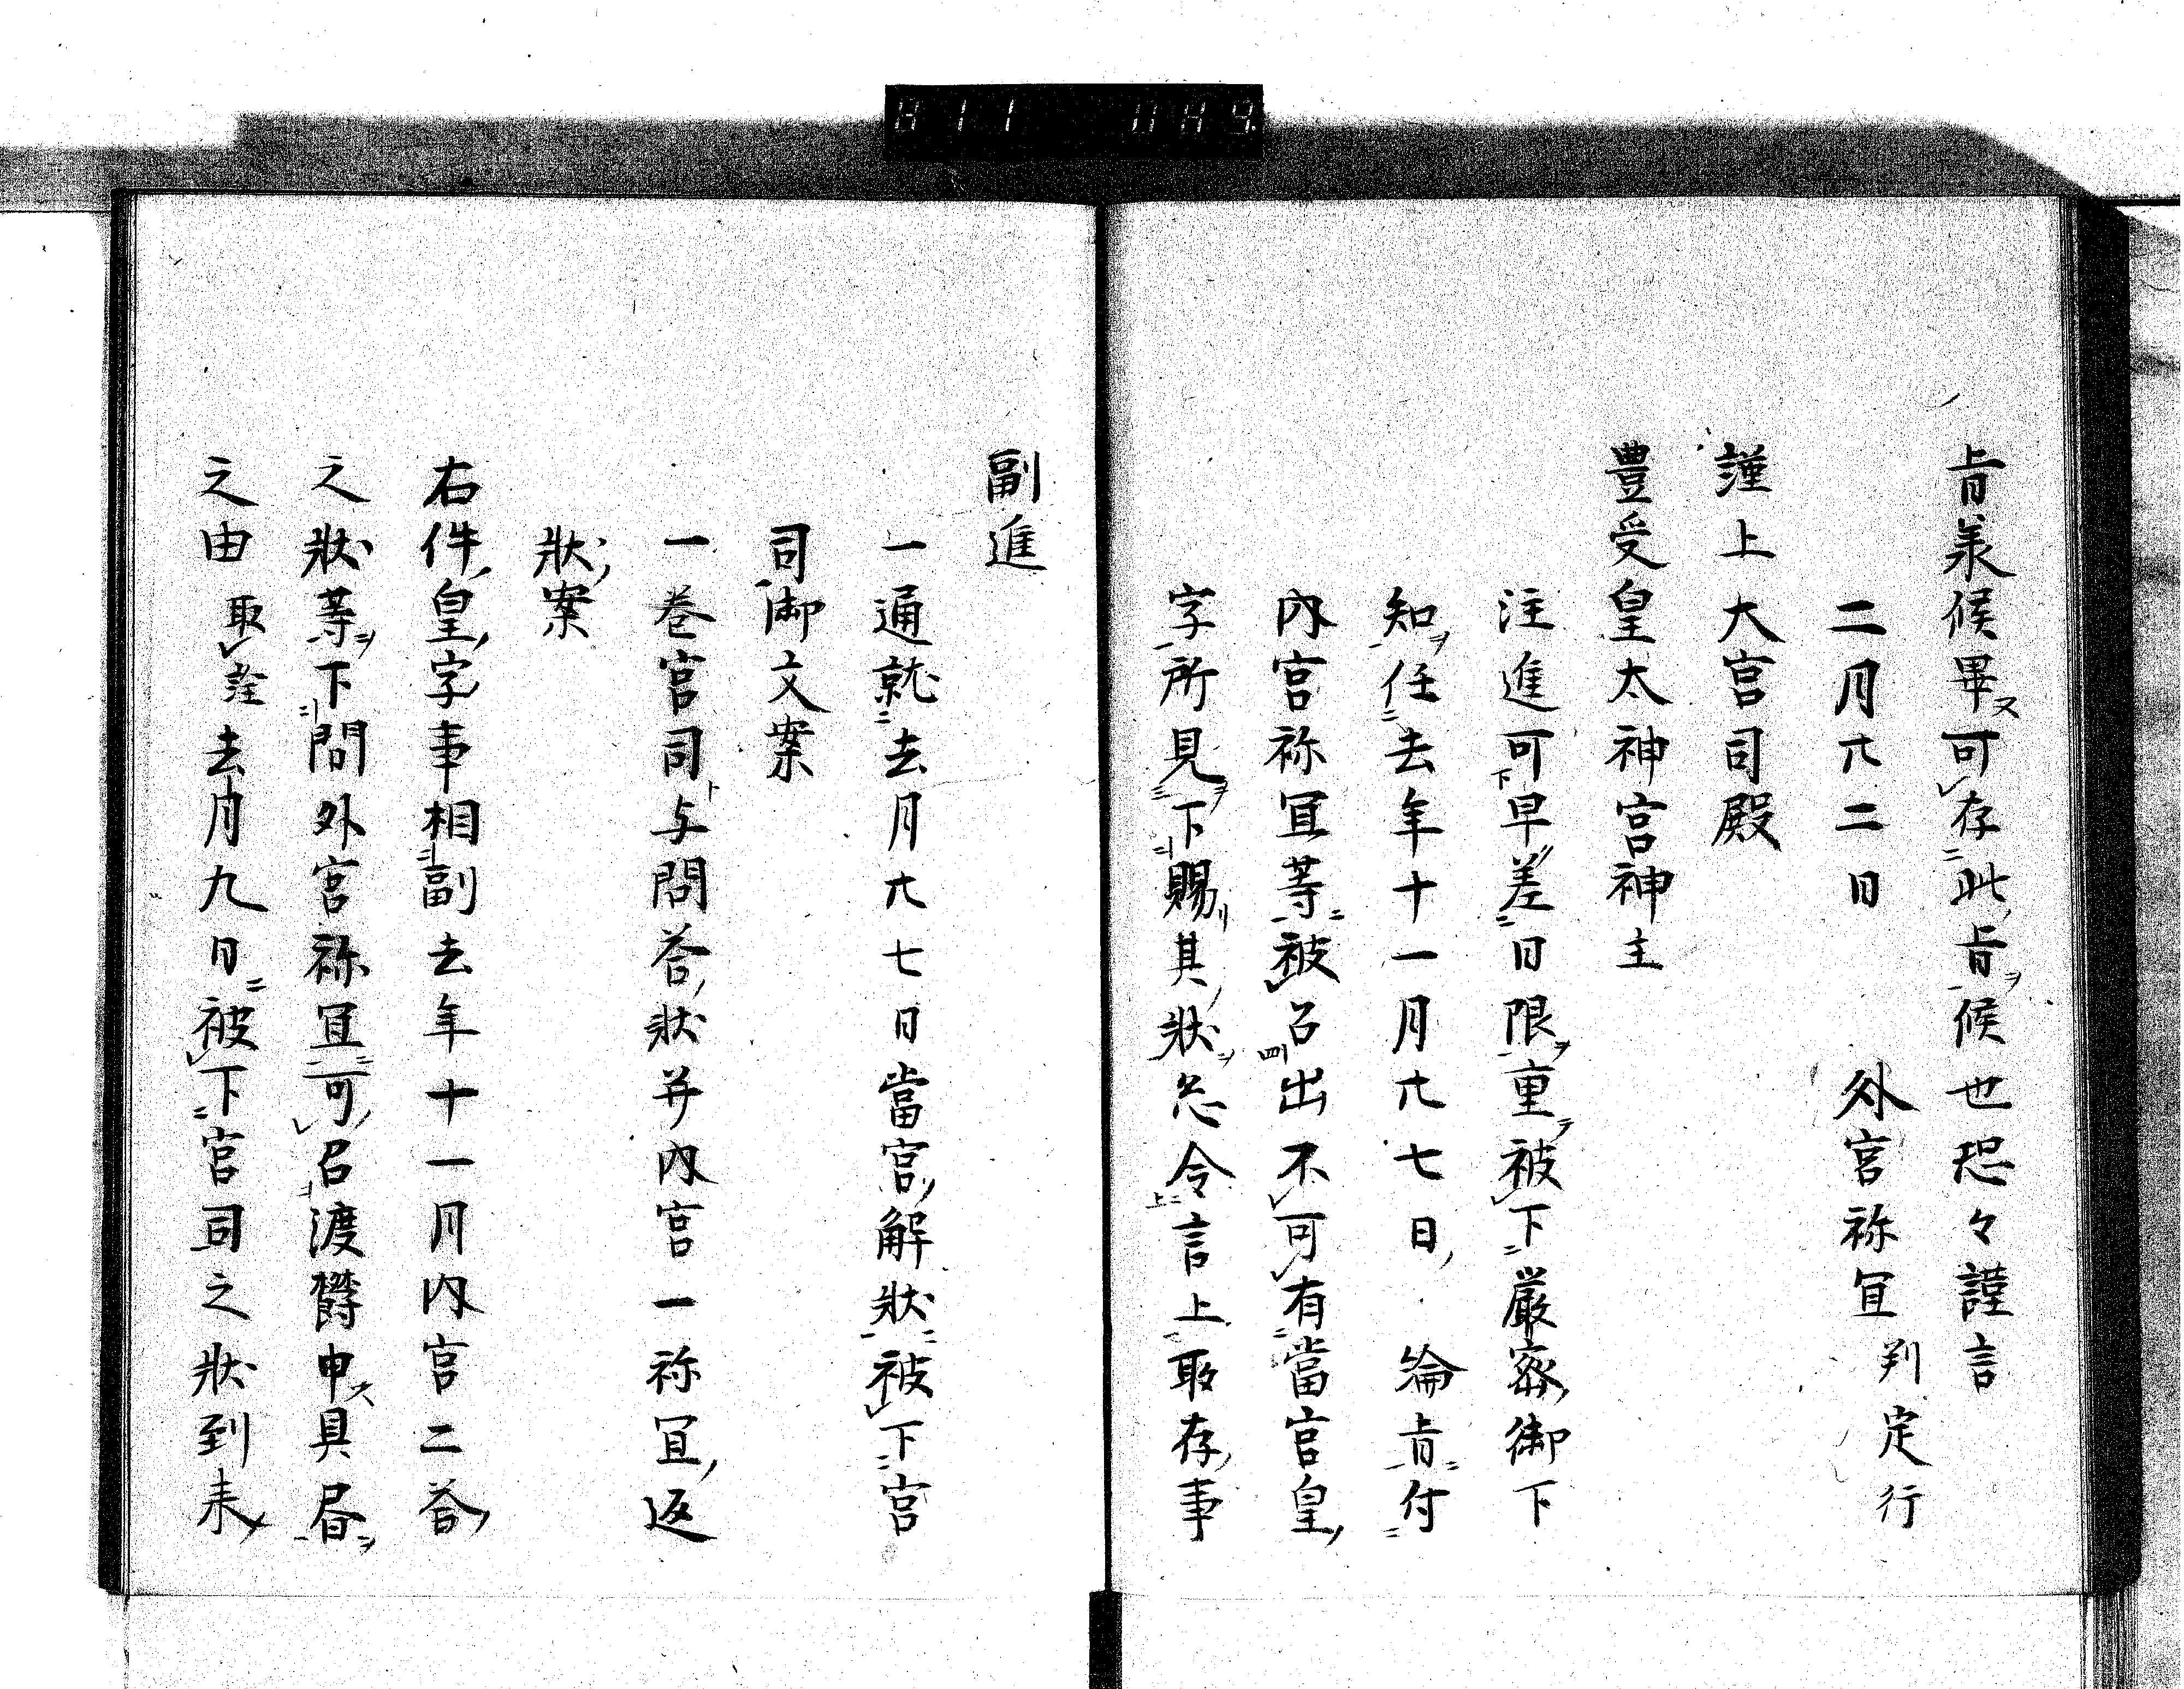 旨承候畢可存此旨候也恐々謹言
二月廿二日　外宮祢冝判定行
謹上大宮司殿
豊受皇太神宮神主
注進可早差日限重被下厳密御下
知任去年十一月廿七日綸旨付
内宮祢冝等被召出不可有當宮皇
字所見下賜其状怱令言上取存事
副進
一通就去月廿七日當宮解状被下宮
司御文案
一巻宮司与問荅状并内宮一祢冝返
状案
右件皇字事相副去年十一月内宮二荅
之状等下問外宮祢冝可召渡欝申具書
之由取詮去月九日被下宮司之状到来